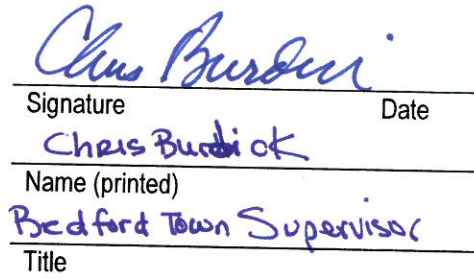 Chris Burdick
Signature Date
Chris Burdick
Name (printed)
Bedford Town Supervisor
Title